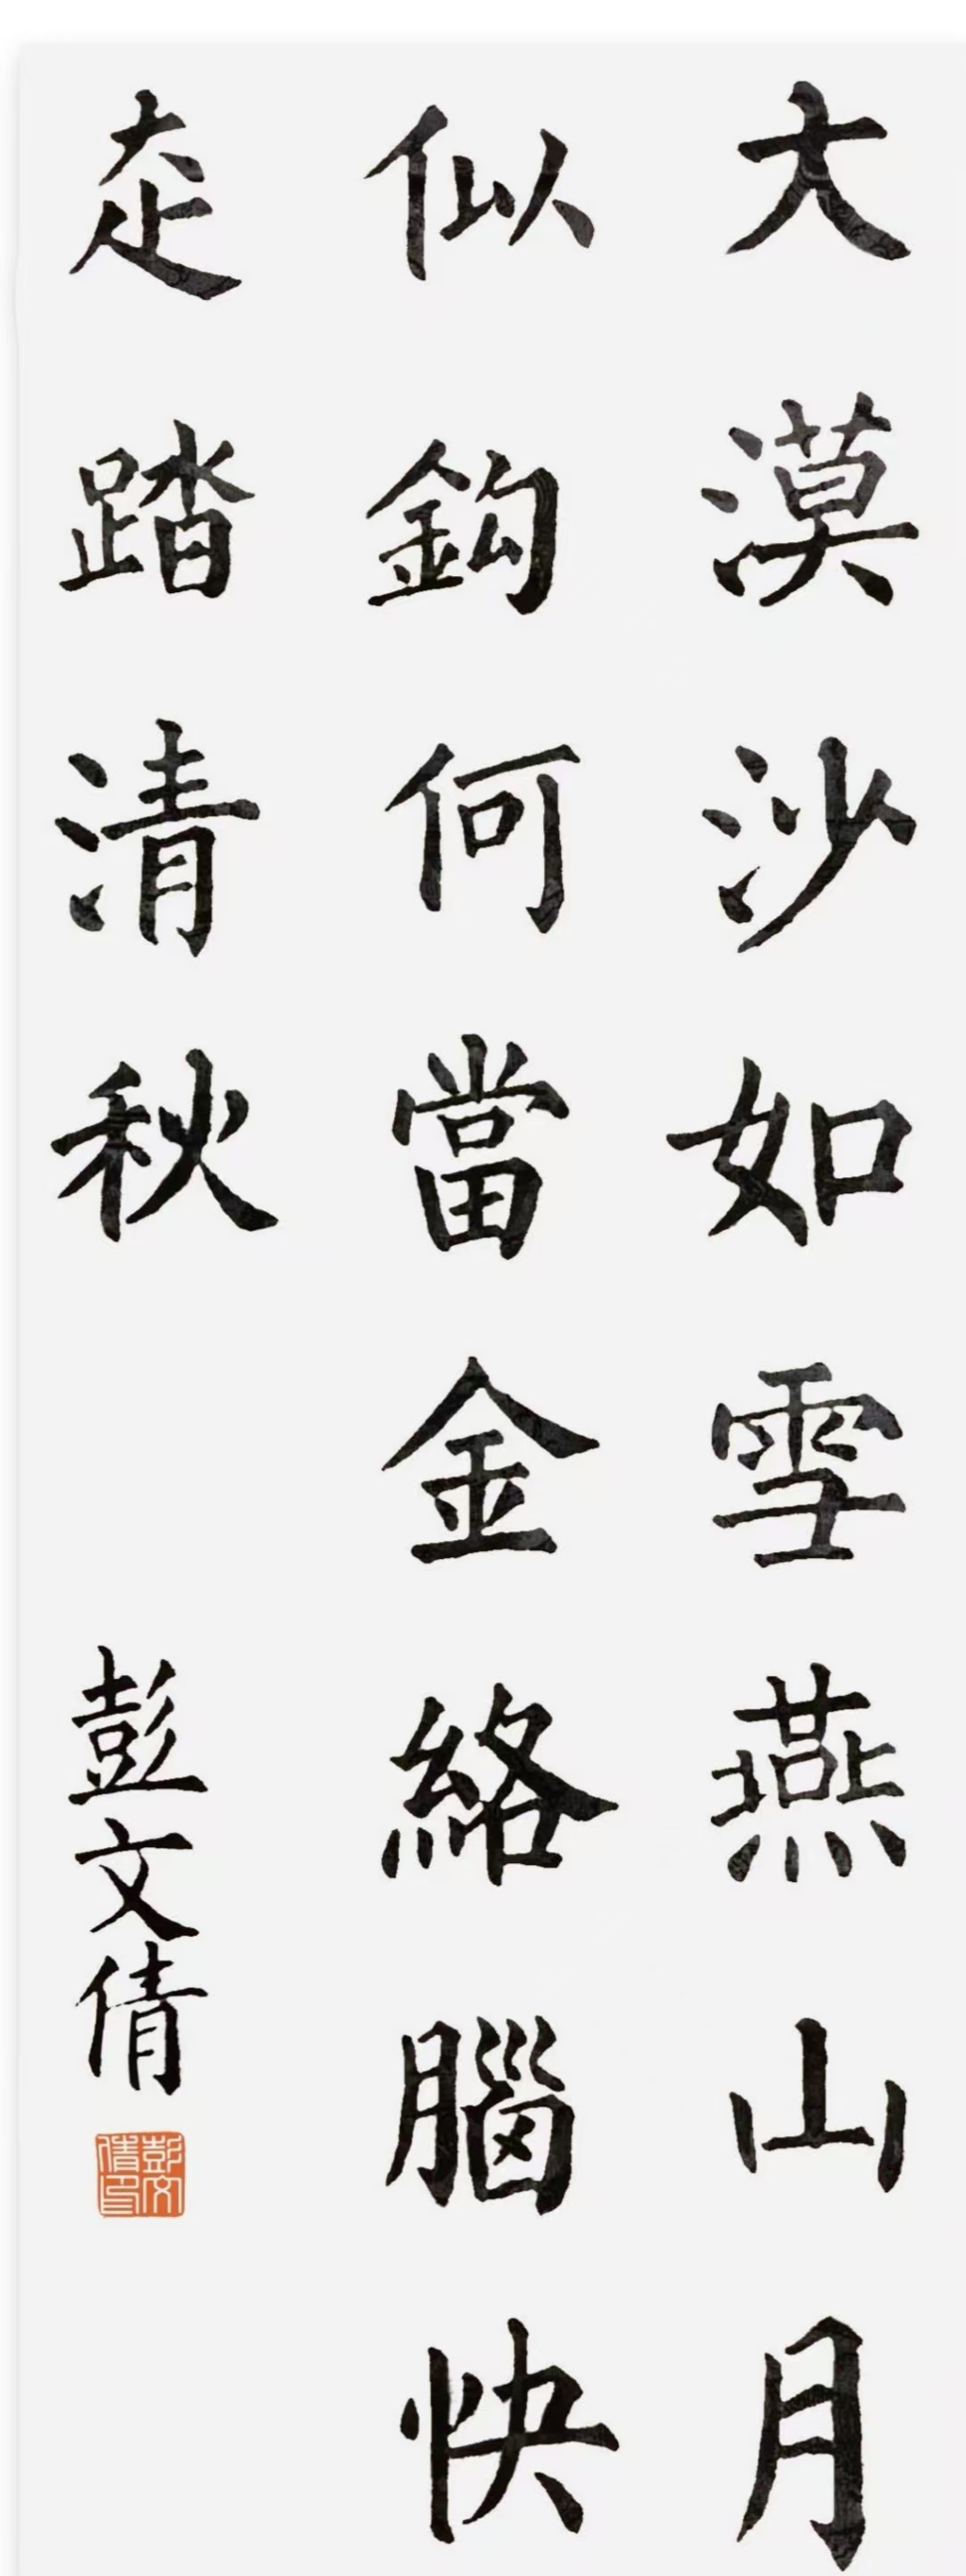 大漠沙如雪燕山月
似鈎何當金絡腦快
走踏清秋
彭文倩
彭文倩印